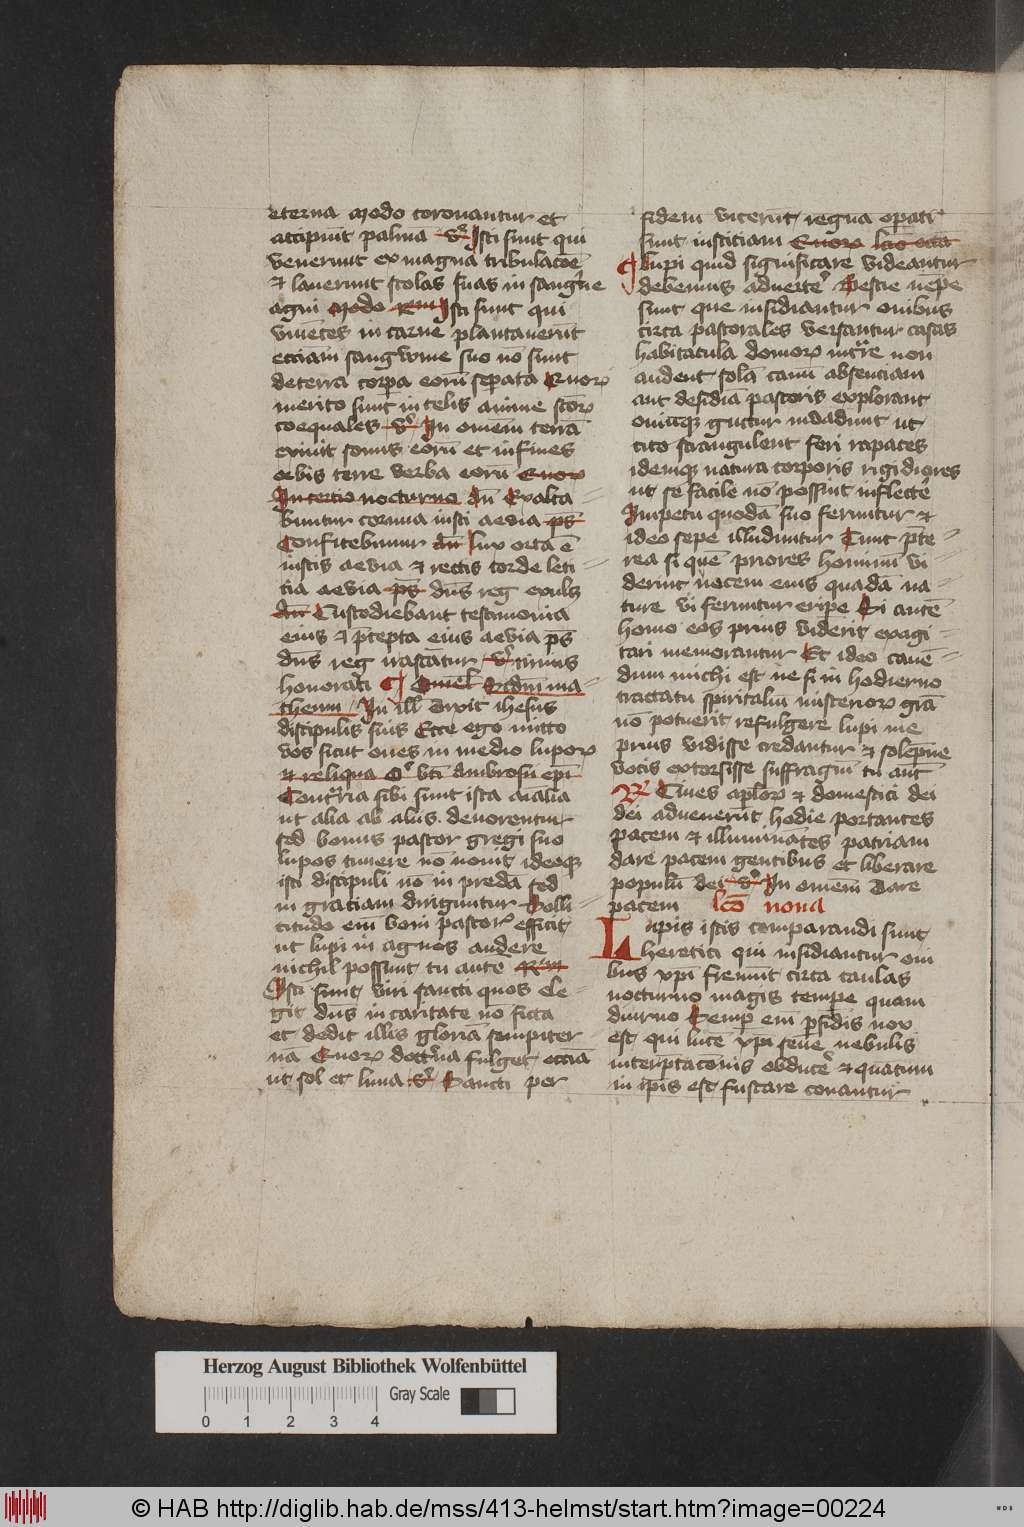 eterna modo coronantur et
accipiūt palma v̊ Isti sunt qui
venerunt ex magna tribulacōe
et laverunt stolas suas in sangīe
agni modo Rm Isti sunt qui
viuētes in carne plantauerūt
ecciam sangwine suo nō sunt
de terra corpa eorū sepata Quorꝝ
merito sunt in celis anime scōrꝝ
coequales v̊ In omem terrā
exiuit sonus eorū et in fines
orbis terre verba eorū Quorꝝ
In tercio nocturno an̄ Exalta
buntur cornua iusti aevia ps̄
Confitebimur an̄ Lux orta ē
iustis aevia et rectis corde leti
tia aevia ps̄ dn̄s reg exulꝫ
an̄ Custodiebant testimonia
eius et p̄cepta eius aevia ps̄
dn̄s reg irascātur v̊ nimis
honorati Omel Scdm̄ ma
theum In ill Dixit ihesus
discipulis suis Ecce ego mitto
vos sicut oues in medio luporꝝ
et reliqua O bt̄i Ambrosii ep̄i
Contr̄ria sibi sunt ista aīalia
ut alia ab aliis deuorentur
sed bonus pastor gregi suo
lupos timere nō nouit ideoqꝫ
isti discipuli nō in predā sed
in graciam diriguntur Solli
citudo eni boni pastorꝭ efficit
ut lupi in agnos audere
nichil possunt tu autē Rm
Isti sunt viri sancti quos ele
git dn̄s in caritate nō ficta
et dedit illis gloriā sempiter
na Quorꝝ doctⁱna fulget ecciā
ut sol et luna v̊ Sancti per
fidem vicerūt regna opati
sunt iusticiam Quorꝝ lc̄o octa
Lupi quid significare videantur
debemus aduertēͤ Bestie nēpe
sunt que insidiantur ouibus
circa pastorales versantur casas
habitacula domorꝝ intr̄re non
audent solā canū absenciam
aut desidiā pastoris explorant
ouiūqꝫ guttur inuadunt ut
cito strangulent feri rapaces
idemqꝫ natura corporis rigidiores
ut se facile nō possint inflecteͤ
Impetu quodā suo feruntur et
ideo sepe illuduntur Tunc p̄te
rea si quē priores hominū vi
derint uocem eius quadā na
ture vi feruntur eripe Si autē
homo eos prius viderit exagi
tari memorantur Et ideo cauē
dum michi est ne si in hodierno
tractatu spiritaliū misteriorꝝ grā
nō potuerit refulgere lupi me
prius vidisse credantur et solēpne
vocis extorsisse suffragiū tu aut̄
R̄ Ciues aplorꝝ et domestici dei
dei aduenerūt hodie portantes
pacem et illuminātes patriam
dare pacem gentibus et liberare
populū dei v̊ In omem Dare
pacem lc̄o nona
Lupis istis comparandi sunt
heretici qui insidiantur oui
bus xp̄i fremūt circa caulas
nocturno magis tempe quam
diurno Semp em̄ p̄fidis nox
est qui lucē xp̄i seue nebulis
interp̄tac̄onis obduceͤ et quātum
in ipis est fuscare conantur
Herzog August Bibliothek Wolfenbüttel
0 1 2 3 4
Gray Scale
© HAB http://diglib.hab.de/mss/413-helmst/start.htm?image=00224